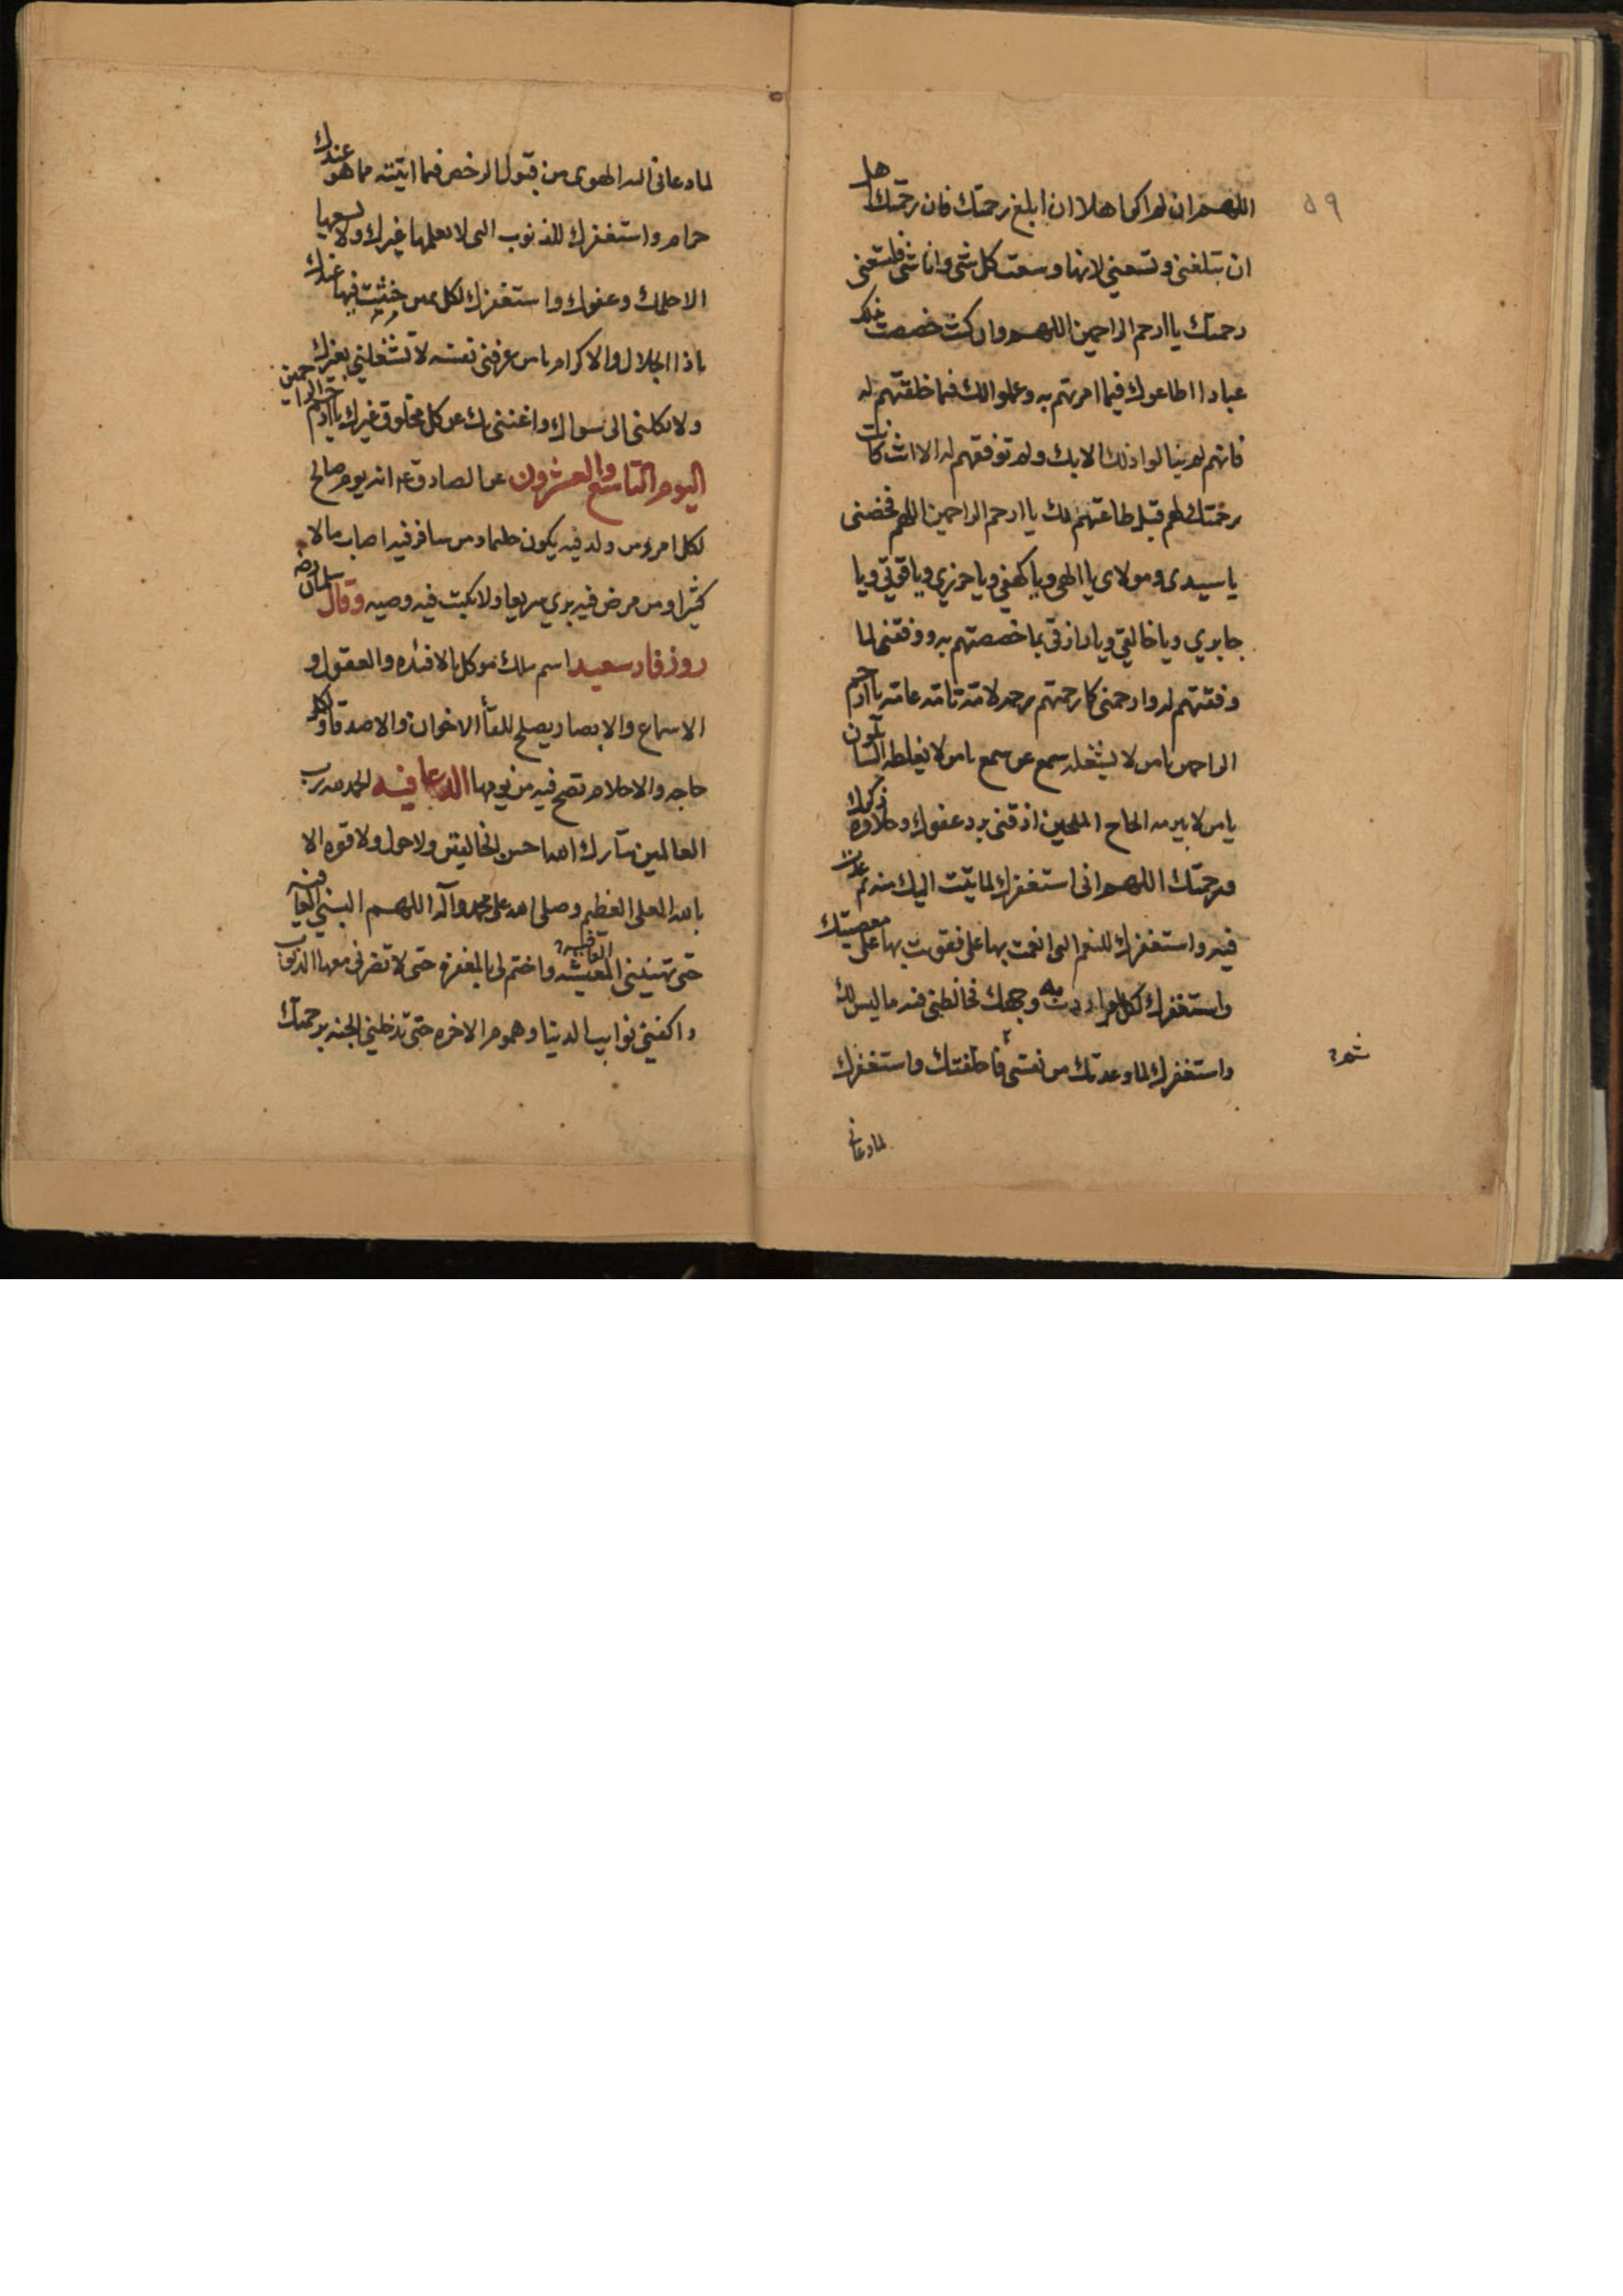 ٥٩
اللهم ان لم اكن اهلا ان ابلغ رحمتك فان رحمتك اهل
ان تبلغنى وتسعنى لانها وسعت كل شى وانا شى فلتسعنى
رحمتك يا ارحم الراحمين اللهم وان كنت خصصت بذلك
عبادا اطاعوك فيما امرتهم به وعملوا لك فيما خلقتهم له
فانهم لم ينالوا ذلك الا بك ولم توفقهم له الا انت كانت
رحمتك لهم قبل طاعتهم لك يا ارحم الراحمين اللهم فخصنى
يا سيدى ومولاى يا الهى ويا كهفى ويا حرزي ويا قوتي ويا
جابري ويا خالقي ويا رازقى بما خصصتهم به ووفقنى لما
وفقتهم له وارحمنى كما رحمتهم رحمه لامة تامة عامة يا ارحم
الراحمين يامن لا يشغله سمع عن سمع يامن لا يغلطه السائلون
يا من لا يبرمه الحاح الملحين اذقنى برد عفوك وحلاوة ذكرك
ورحمتك اللهم انى استغفرك لما تبت اليك منه ثم عدت
فيه واستغفرك للنعم التى انعمت بها على فقويت بها على معصيتك
واستغفرك لكل امر اردت به وجهك فخالطنى فيه ما ليس لك
واستغفرك لما وعدتك من نفسى فاخلفتك واستغفرك
لما دعانى
لما دعانى اليه الهوى من قبول الرخص فيما اتيته مما هو عندك
حرام واستغفرك للذنوب التى لا يعلمها غيرك ولا يسعها
الا حلمك وعفوك واستغفرك لكل يمين حنثت فيها عندك
ياذا الجلال والاكرام يا من عرفنى نفسه لا تشغلني بغيرك
ولا تكلنى الى سواك واغننى بك عن كل مخلوق غيرك يا ارحم الراحمين
اليوم التاسع والعشرون عن الصادق ع انه يوم صالح
لكل امر ومن ولد فيه يكون حليما ومن سافر فيه اصاب مالا
كثيرا ومن مرض فيه برى سريعا ولا تكتب فيه وصيه وقال سلمان رضه
روز فار سعيد اسم ملك موكل بالافئده والعقول و
الاسماع والابصار يصلح للقأ الاخوان والاصدقاء وكل
حاجه والاحلام تصح فيه من يومها الدعا فيه الحمد لله رب
العالمين تبارك الله احسن الخالقين ولا حول ولا قوه الا
بالله العلى العظيم وصلى الله على محمد وآله اللهم البسني العافية
حتى تهنيني المعيشه واختم لى بالمغفرة حتى لا تضرنى معها الذنوب
واكفني نوايب الدنيا وهموم الاخره حتى تدخلني الجنه برحمتك